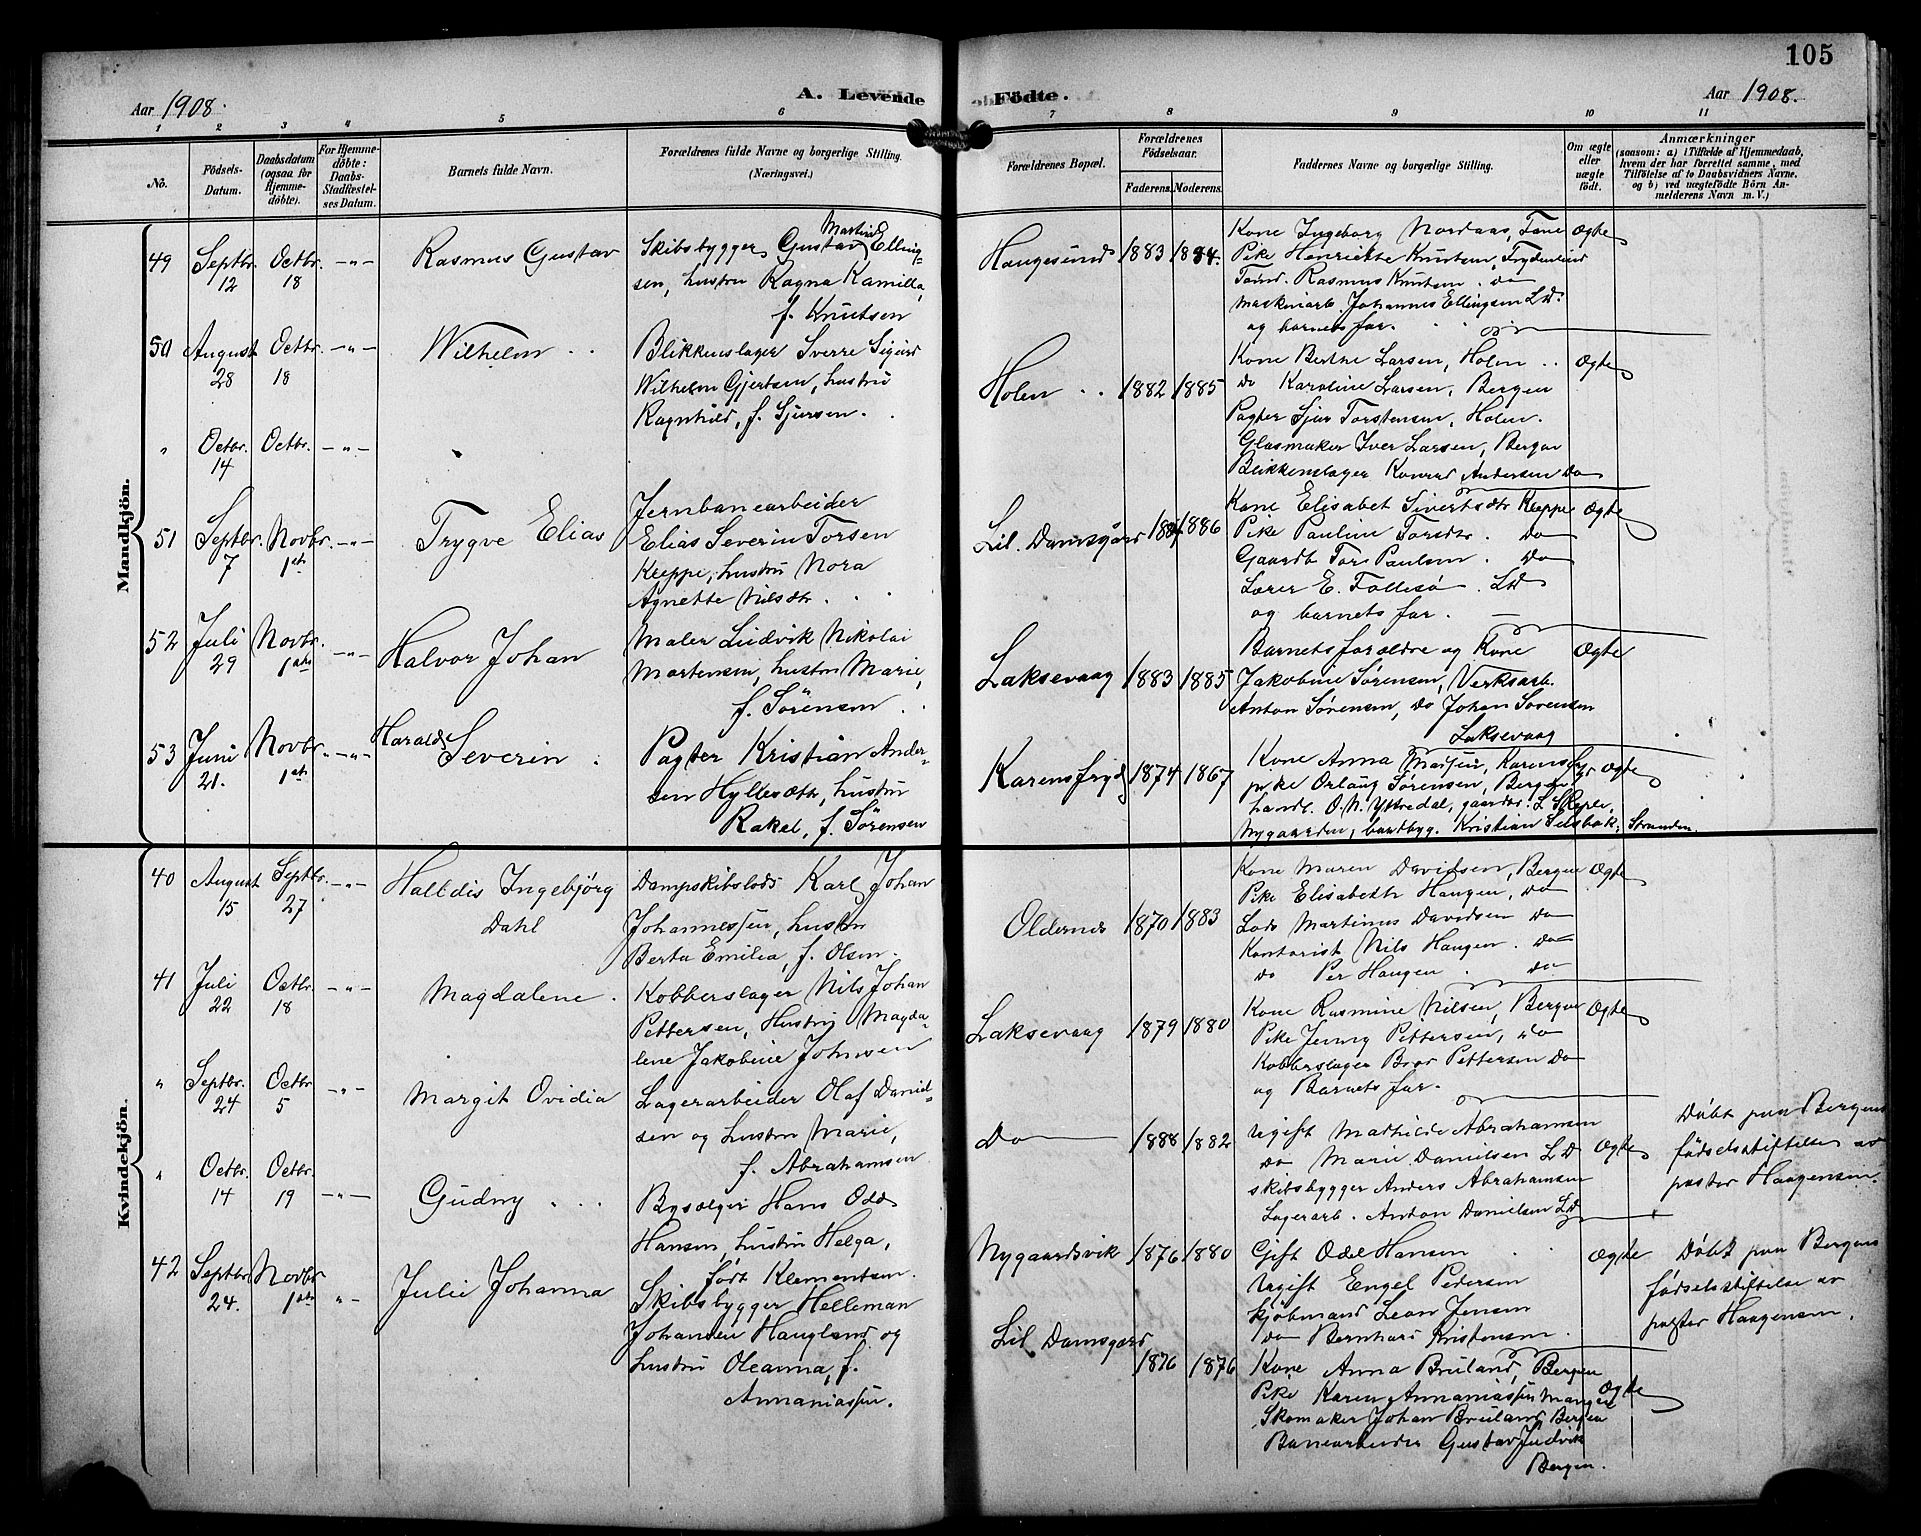 105
Aar 1908.
A. Levende Fødte.
Aar 1908.
1 2 3 4 5 6 7 8 9 10 11
No.
Fødsels-Datum.
Daabsdatum (ogsaa for Hjemme-døbte).
For Hjemme-døbte: Daabs-Stadfæstelses Datum.
Barnets fulde Navn.
Forældrenes fulde Navne og borgerlige Stilling. (Næringsvei.)
Forældrenes Bopæl.
Forældrenes Fødselsaar.
Faderens. Moderens.
Faddernes Navne og borgerlige Stilling.
Om ægte eller uægte født.
Anmærkninger
(saasom: a) i Tilfælde af Hjemmedaab,
hvem der har forrettet samme, med
Tilføielse af to Daabsvidners Navne,
og b) ved uægtefødte Børn An-
melderens Navn m. V.)
Mandkjön.
49 Septbr. 12 Octbr. 18 -"- Rasmus Gustav
Skibsbygger Gustav Martin Elling-
sen, hustru Ragna Kamilla,
f. Knutsen
Haugesund 1883 1884.
Kone Ingeborg Nordaas,
Pike Henriette Knutsen,
Rasmus Knutsen. do
Maskinarb. Johannes Ellingsen L.D.
og barnets far.
Ægte
50 August 28 Octbr. 18 -"- Wilhelm
Blikkenslager Sverre Sigurd
Wilhelm Gjertsen, hustru
Ragnhild, f. Sjursen.
Holen 1882 1885
Kone Berthe Larsen, Holen
do Karoline Larsen, Bergen
Pagter Sjur Torstensen, Holen.
Glasmaker Iver Larsen, Bergen
Blikkenslager Konrad Andersen Do
Ægte
" Octbr. 14 Octbr. -"-
51 Septbr. 7 Novbr. 1ste -"- Trygve Elias
Jernbanearbeider
Elias Severin Torsen
Kleppe, hustru Nora
Agnette Nilsdtr.
Lil. Damsgård 1886
Kone Elisabet Sivertsdtr Kleppe
Pike Pauline Torsdtr. Do
Gaardb Tor Paulsen. Do
Lærer E. Follesø. L.D
og barnets far.
Ægte
52 Juli 29 Novbr. 1ste -"- Halvor Johan
Maler Ludvik Nikolai
Martensen, hustru Marie,
f. Sörensen
Laksevaag 1883 1885
Barnets forældre og Kone
Jakobine Sørensen, Verksarb.
Anton Sørensen, Do Johan Sørensen
Laksevaag
Ægte
53 Juni 21. Novbr. 1ste -"- Harald Severin
Pagter Kristian Ander-
sen Hyllesæter, hustru
Rakel, f. Sørensen
Karensfryd 1874 1867
Kone Anna Karensfryd
pike Orlaug Sørensen, Bergen
handl. O. N. Yttredal,
Nygaarden, baadbyg. Kristian Stranden
Ægte
Kvindekjön.
40 August 15 Septbr. 27 -"- Halldis Ingebjörg
Dahl
Dampskibslods Karl Johan
Johannessen, hustru
Berta Emilia, f. Olsen.
Oldernes 1870 1883
Kone Maren Davidsen, Bergen
Pike Elisabeth Haugen, Do
Lods Martinus Davidsen Do
Kontorist Nils Haugen. Do
do Per Haugen do
Ægte
41 Juli 22 Octbr. 18 -"- Magdalene.
Kobberslager Nils Johan
Pettersen, Hustru Magda-
lene Jakobine Johnsen
Laksevaag 1879 1880
Kone Rasmine Nilsen, Bergen
Pike Jenny Pettersen, Do
Kobberslager Bror Pettersen Do
og Barnets far.
Ægte
" Septbr. 24 Octbr 5 -"- Margit Ovidia
Lagerarbeider Olaf Daniel-
sen og hustru Marie,
f. Abrahamsen
Do 1888 1882
Ugift Mathilde Abrahamsen
do Marie Danielsen L.D
skibsbygger Anders Abrahamsen
Lagerarb. Anton Danielsen L.D
Ægte
Döbt paa Bergens
fødselsstiftelse av
pastor Haagensen.
" Octbr. 14 Octbr. 19 -"- Gudny
Bysælger Hans Odd
Hansen, hustru Helga,
født Klementsen.
Nygaardsvik 1876 1880
Gift Odel Hansen
Ugift Engel Pedersen
kjøbmand Leon Jensen
do Bernhard Kristensen.
Ægte
Döbt paa Bergens
fødselsstiftelse av
pastor Haagensen.
42 Septbr. 24. Novbr 1ste "- Julie Johanna
Skibsbygger Helleman
Johansen Haugland og
hustru Oleanna, f.
Annaniassen.
Lil Damsgård 1876 1876
Kone Anna Bruland, Bergen
Pike Karen Annaniassen
Skomaker Johan Bruland Bergen
Banearbeider Gustav Ludvik
Bergen.
Ægte